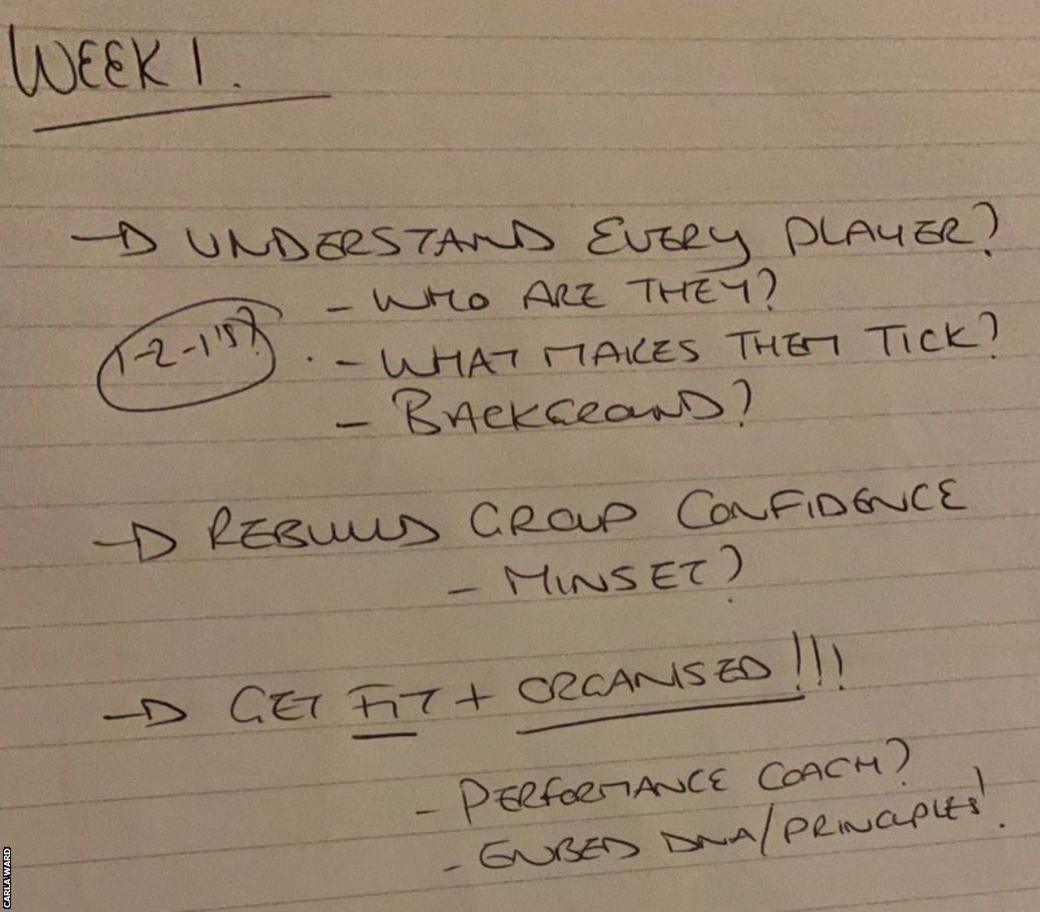 WEEK 1.
→ UNDERSTAND EVERY PLAYER?
- WHO ARE THEY?
1-2-1's?
- WHAT MAKES THEM TICK?
- BACKGROUND?
→ REBUILD GROUP CONFIDENCE
- MINSET?
→ GET FIT + ORGANISED!!!
- PERFORMANCE COACH?
- EMBED DNA/PRINCIPLES!
CARLA WARD